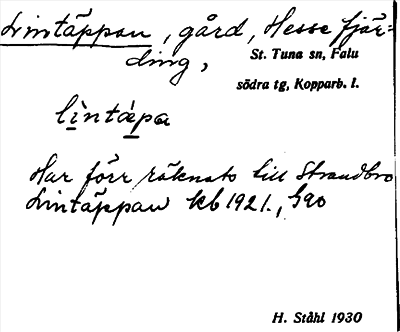 Lintäppan, gård, Hesse fjär=
ding,
St. Tuna sn, Falu
södra tg, Kopparb. l.
lìntäpa
Har förr räknats till Strandbro
Lintäppan kb 1921., S90
H. Ståhl 1930